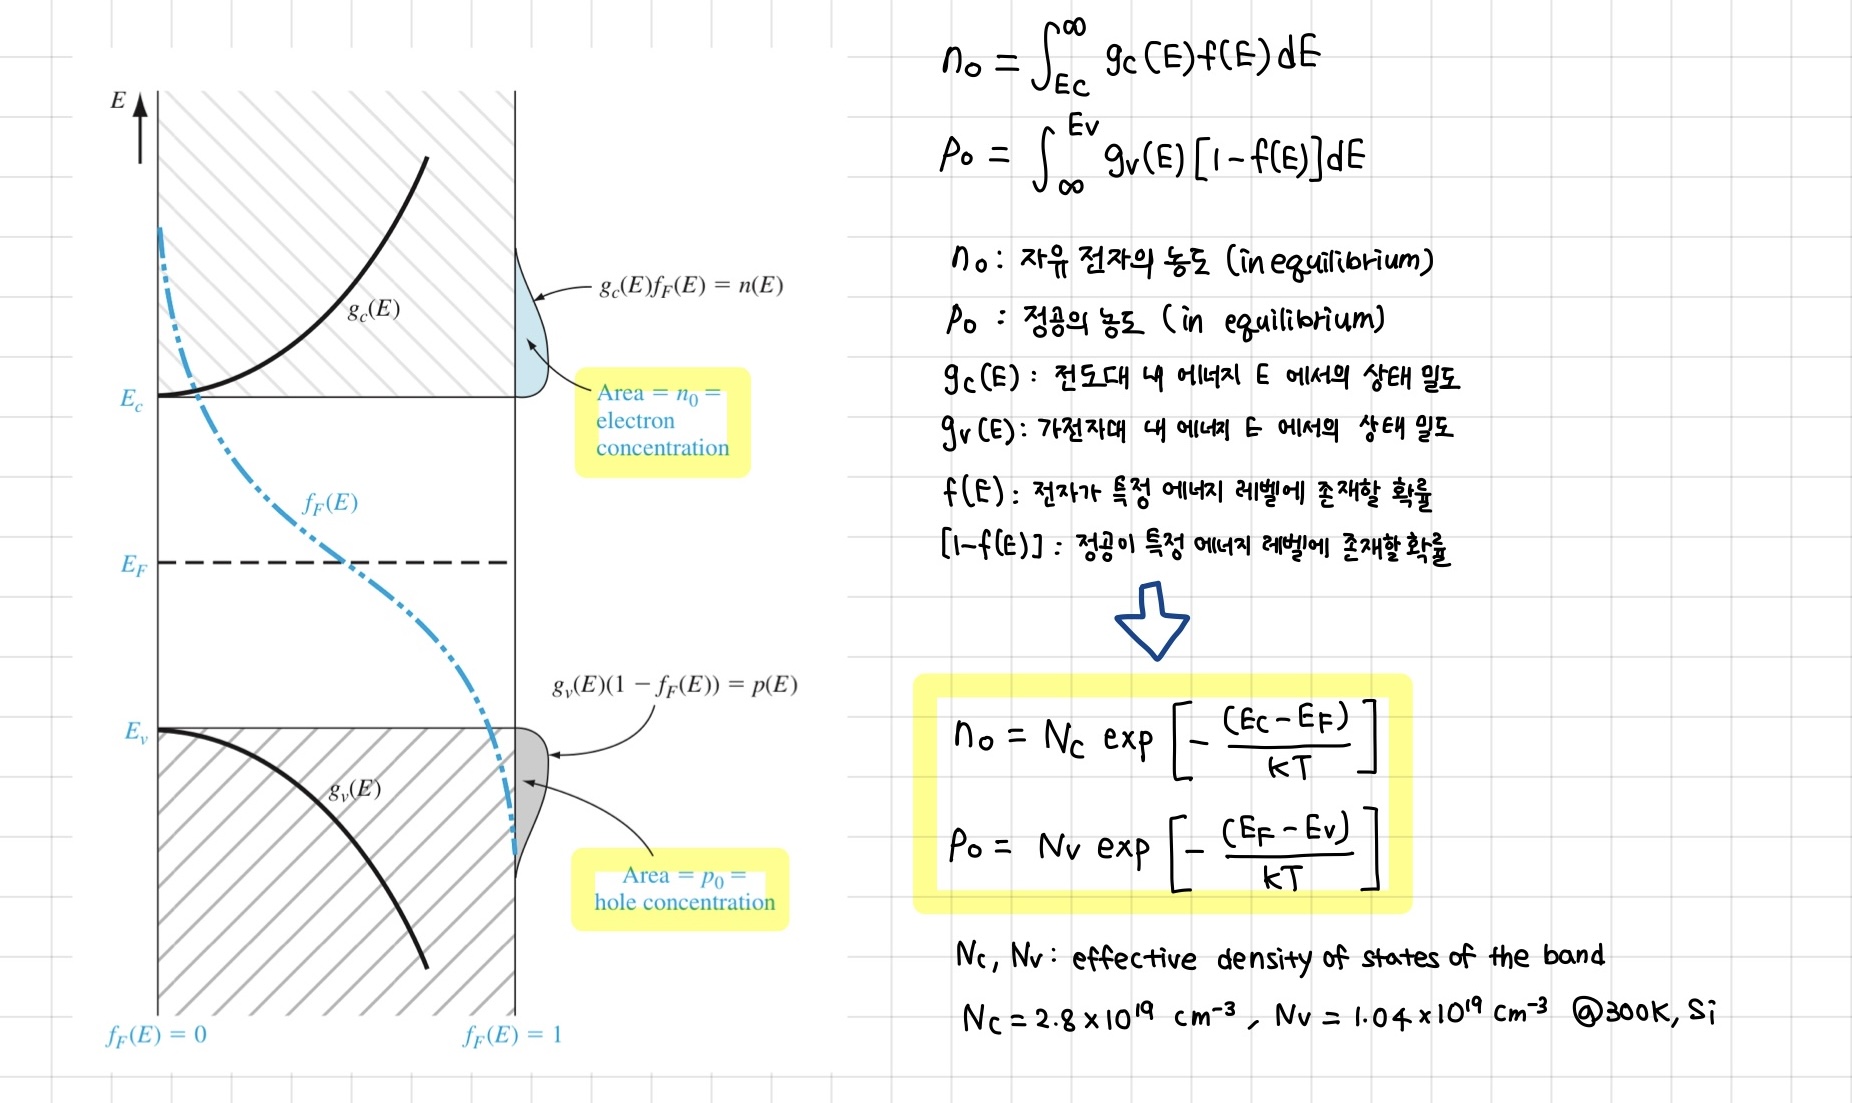 E
g_c(E)
g_c(E)f_F(E) = n(E)
Area = n_0 =
electron
concentration
E_c
f_F(E)
E_F
g_v(E)(1 − f_F(E)) = p(E)
E_v
g_v(E)
Area = p_0 =
hole concentration
f_F(E) = 0
f_F(E) = 1
n_0 = ∫_{Ec}^{∞} g_c(E)f(E)dE
p_0 = ∫_{∞}^{Ev} g_v(E)[1−f(E)]dE
n_0 : 자유 전자의 농도 (in equilibrium)
p_0 : 정공의 농도 (in equilibrium)
g_c(E) : 전도대 내 에너지 E 에서의 상태 밀도
g_v(E) : 가전자대 내 에너지 E 에서의 상태 밀도
f(E) : 전자가 특정 에너지 레벨에 존재할 확률
[1−f(E)] : 정공이 특정 에너지 레벨에 존재할 확률
n_0 = N_c exp [− (E_c − E_F) / kT]
p_0 = N_v exp [− (E_F − E_v) / kT]
N_c, N_v : effective density of states of the band
N_c = 2.8 × 10^19 cm^-3, N_v = 1.04 × 10^19 cm^-3 @300K, Si